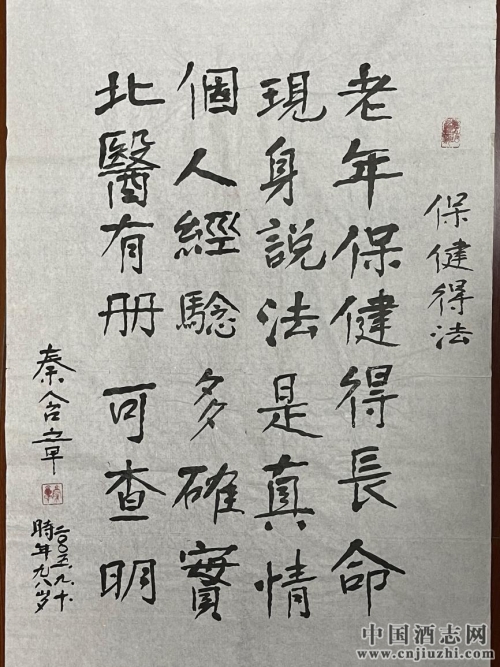 保健得法
老年保健得長命
現身說法是真情
個人經驗多確實
北醫有册可查明
秦含章
二〇〇五.九.十.
時年九八岁
中国酒志网
www.cnjiuzhi.com